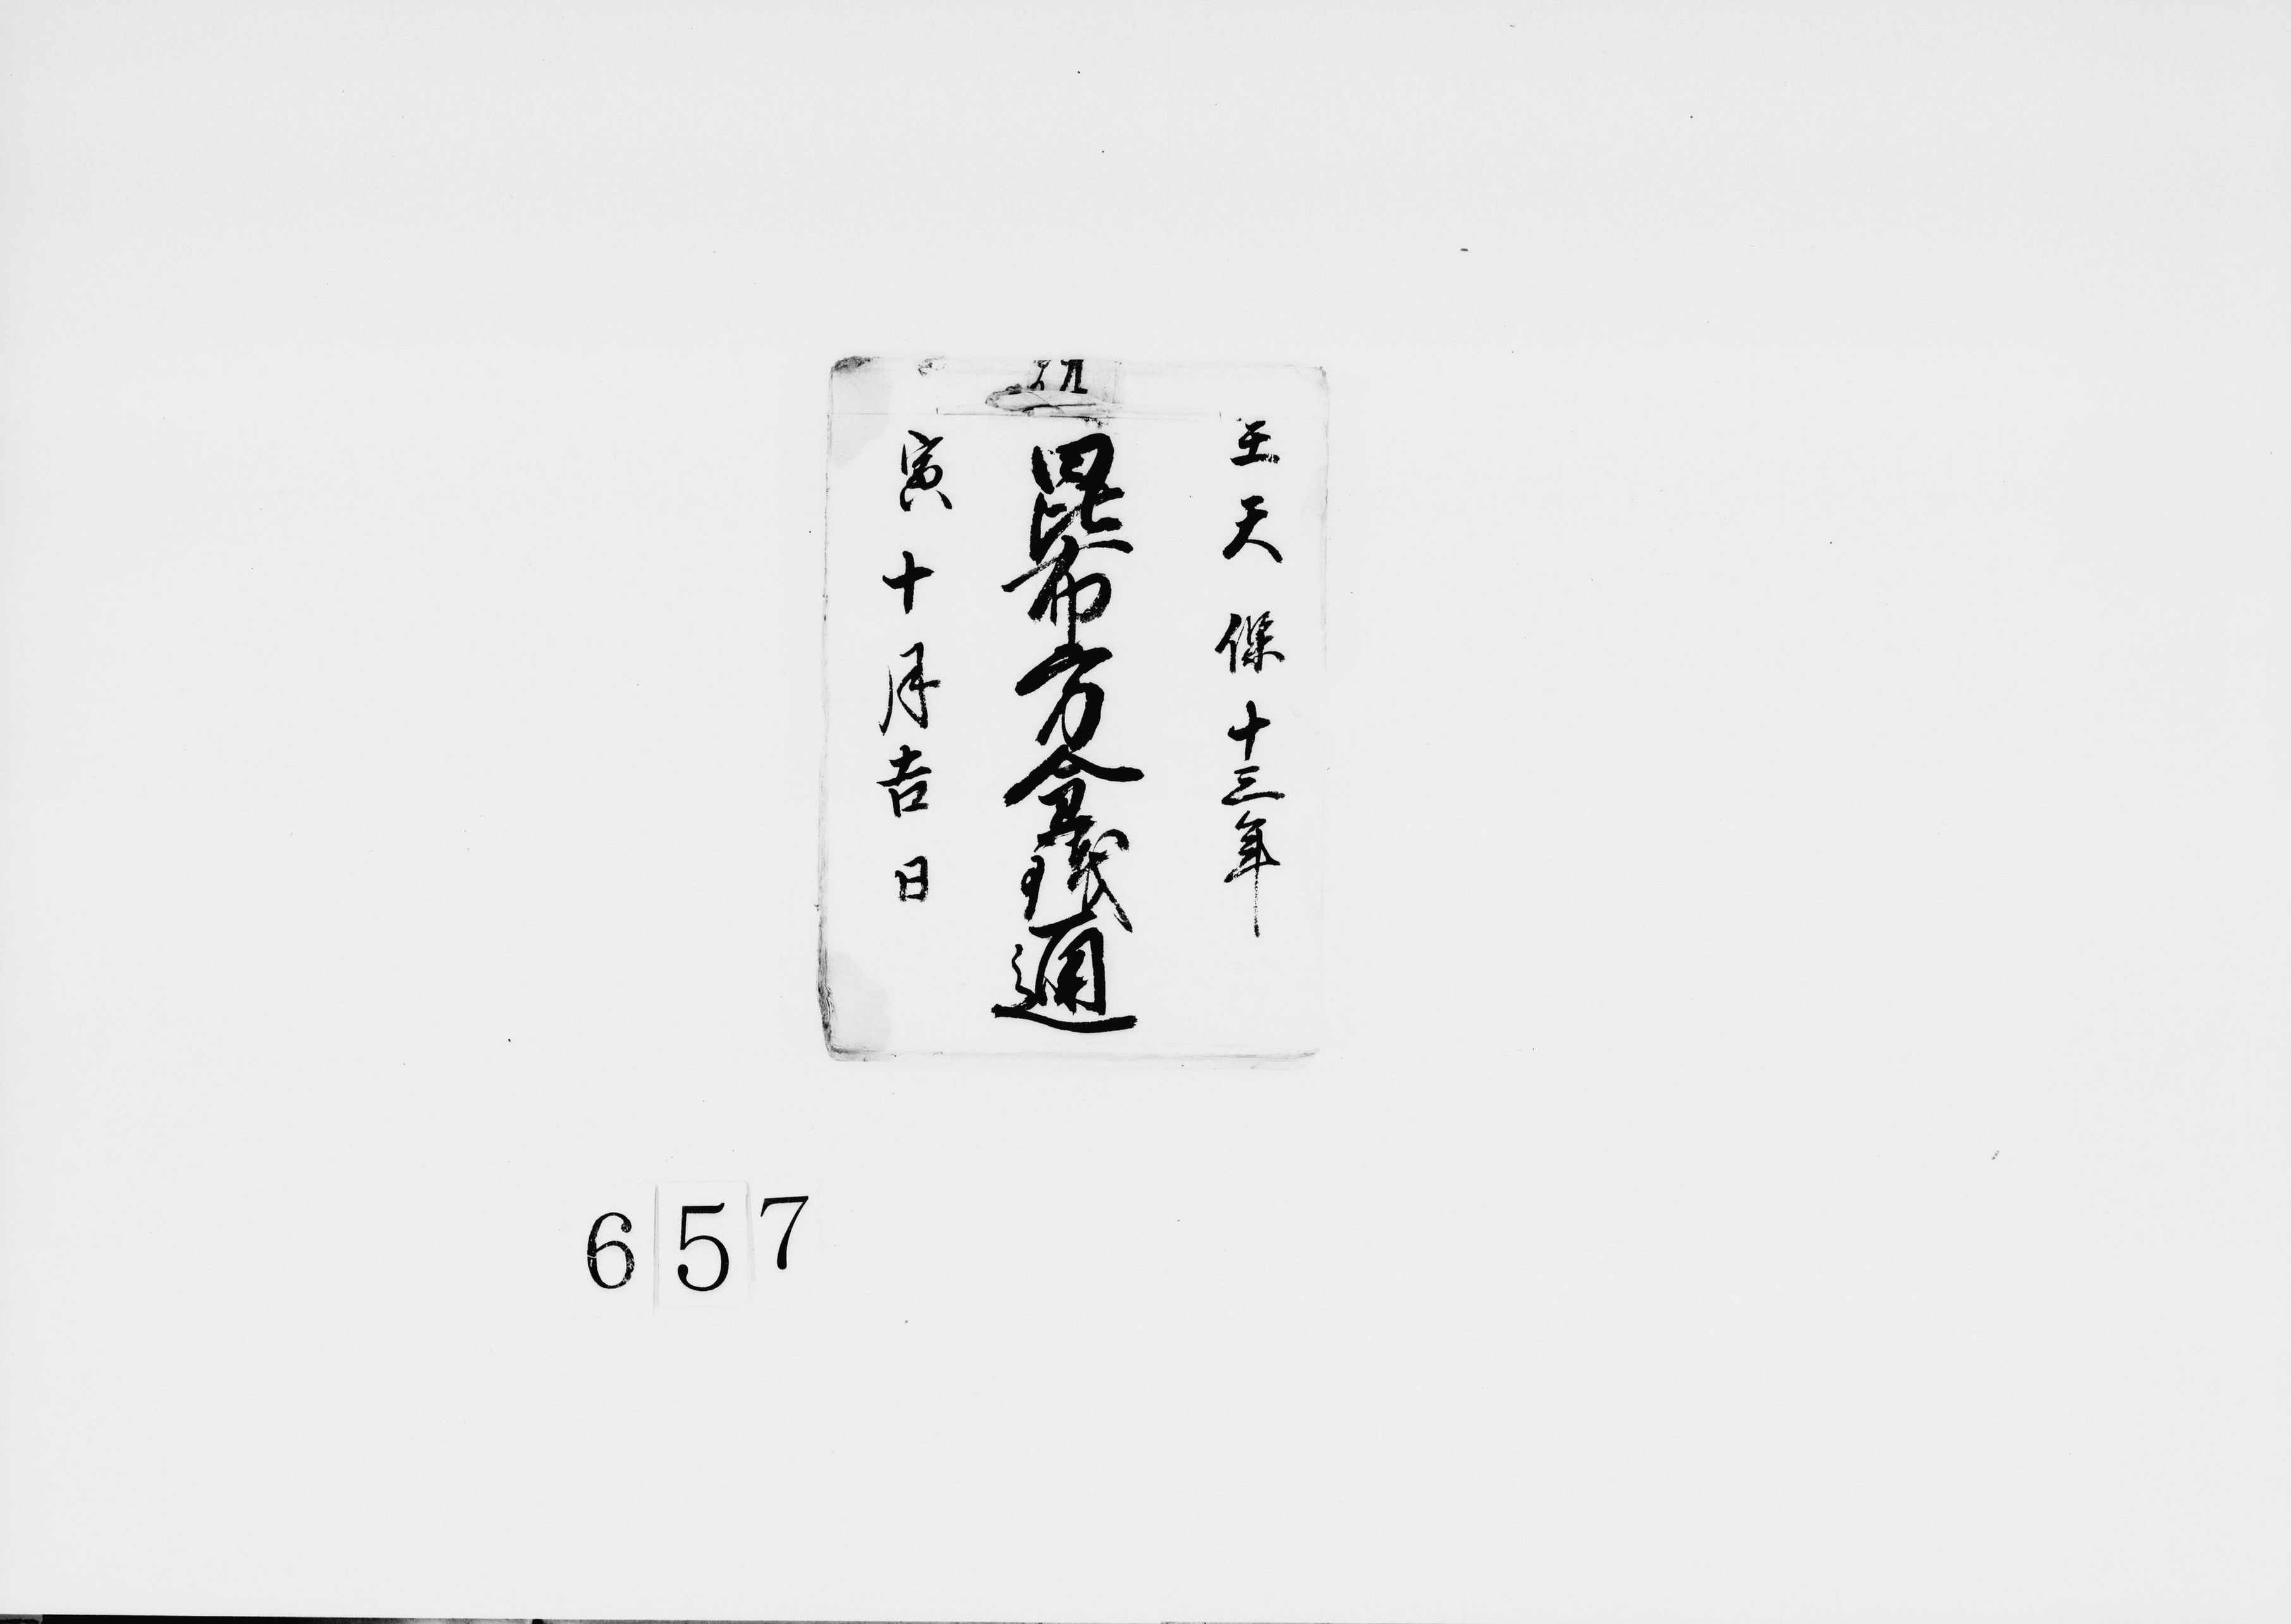 壬天保十三年
昆布方金銭通
寅十月吉日
657